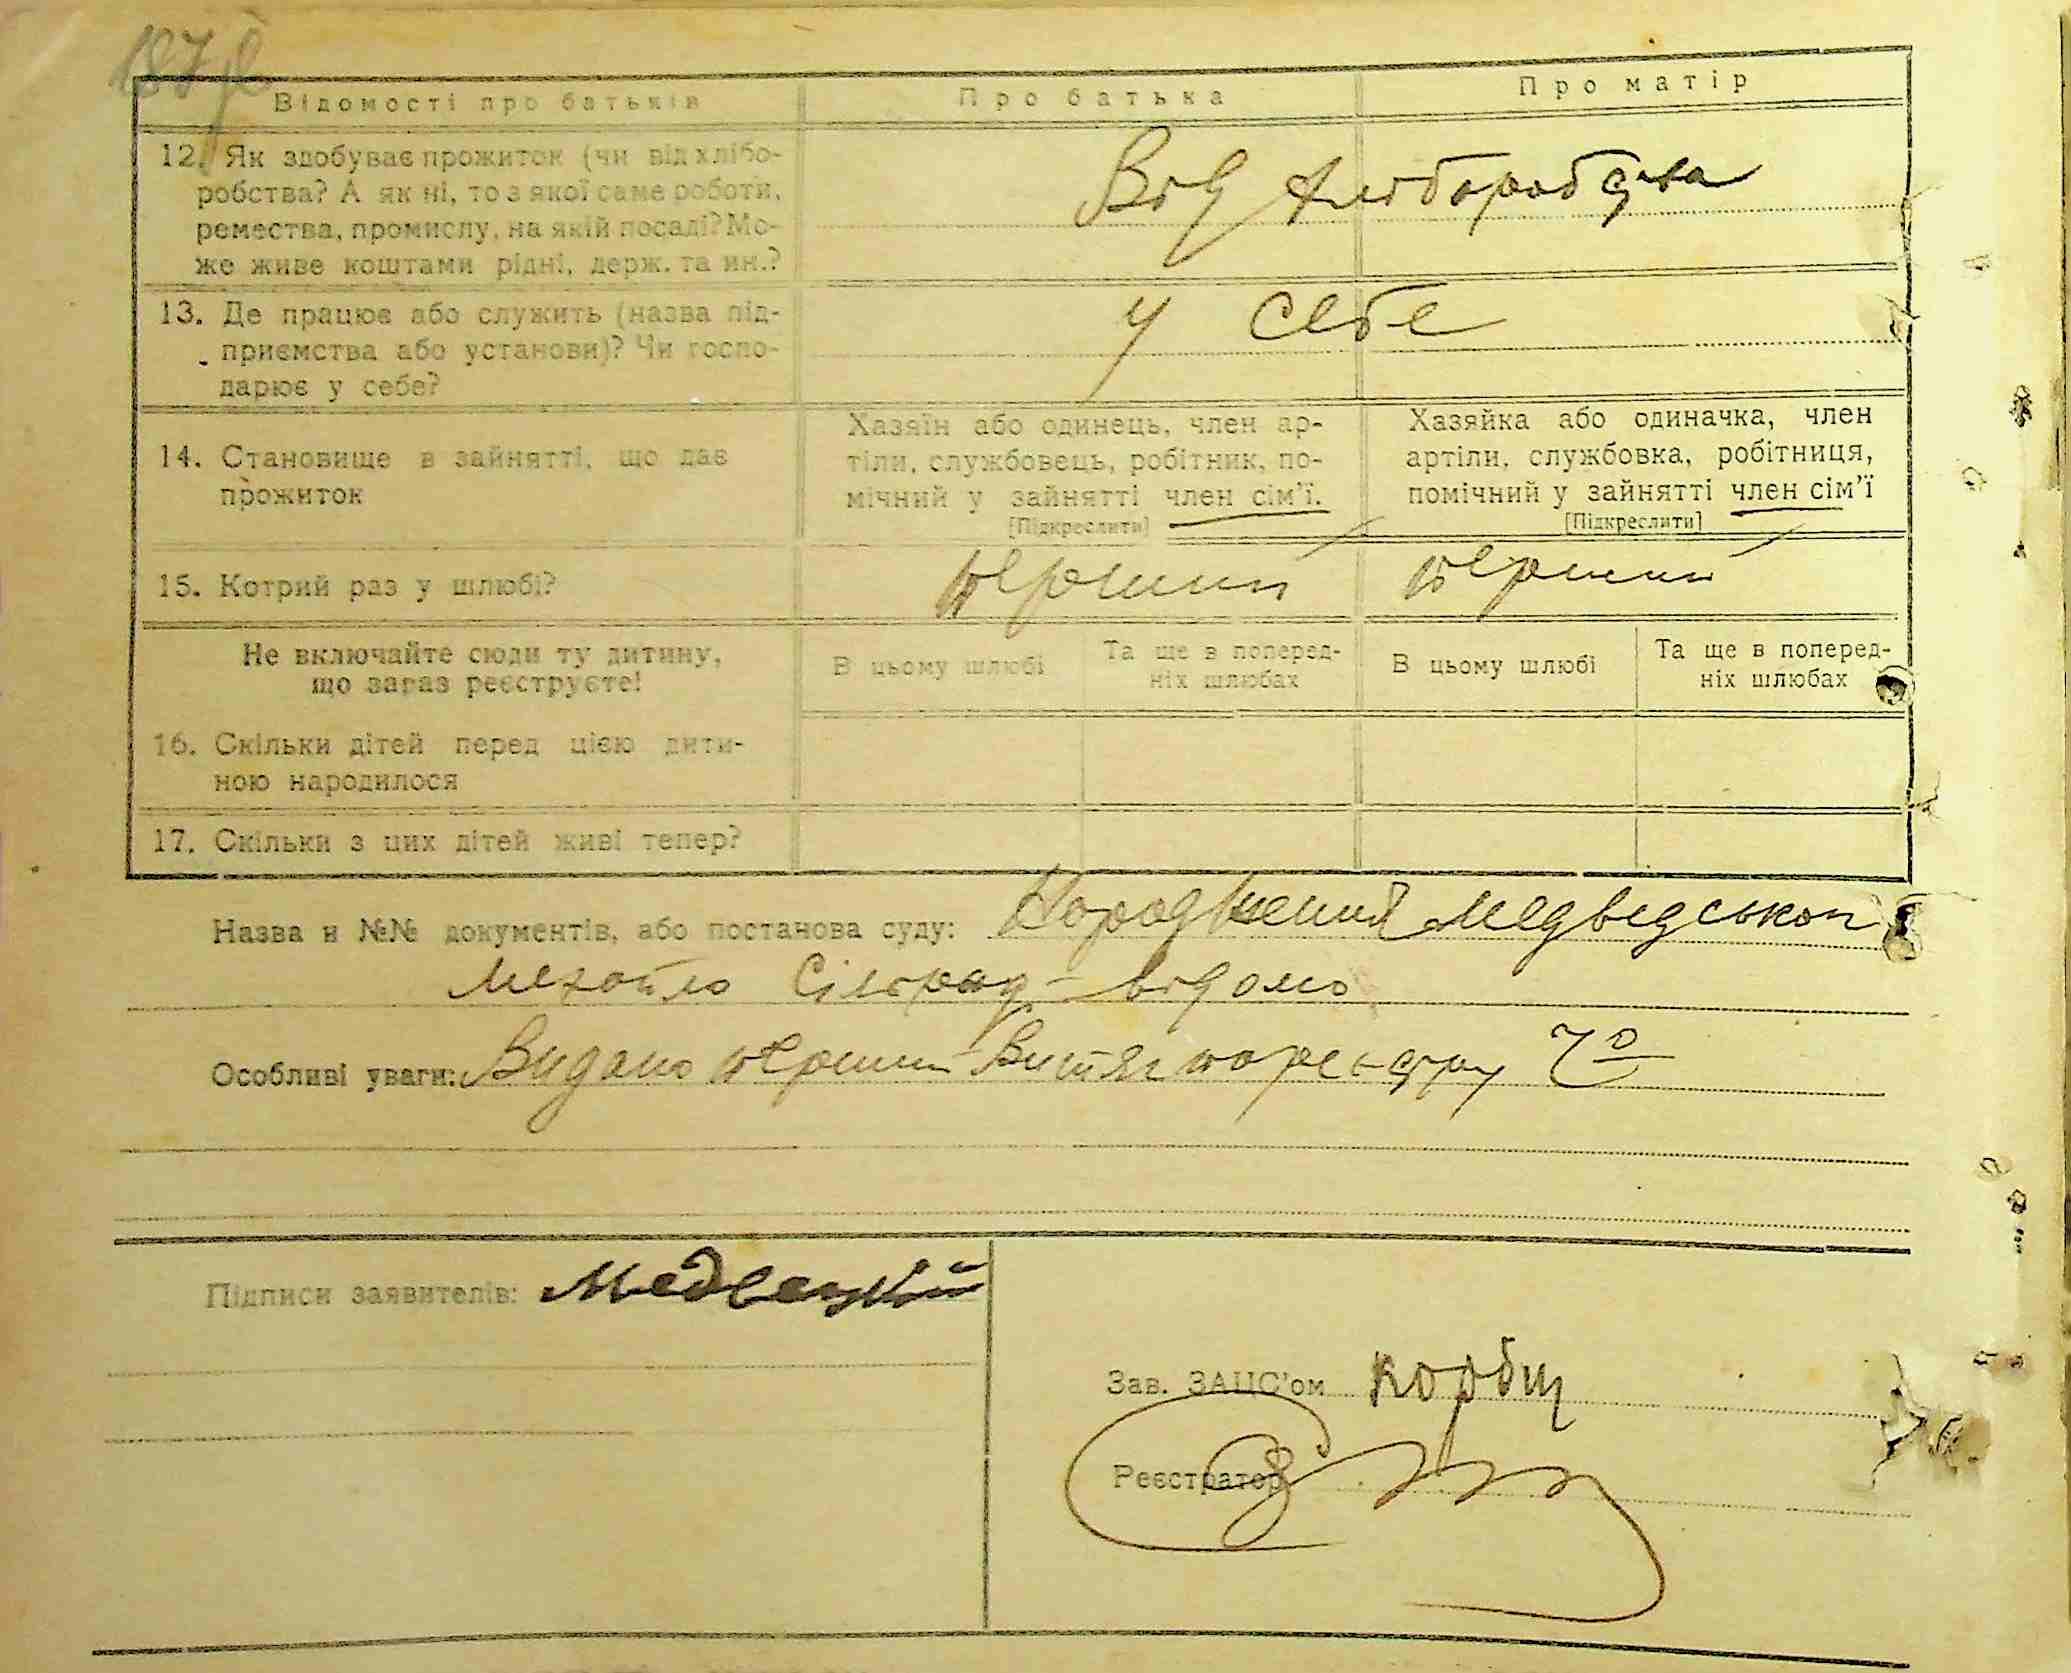 Відомості про батьків
Про батька
Про матір
12. Як здобуває прожиток (чи від хлібо-
робства? А як ні, то з якої саме роботи,
ремества, промислу, на якій посаді? Мо-
же живе коштами рідні, держ. та ин.?
Від хліборобства
13. Де працює або служить (назва під-
приємства або установи)? Чи госпо-
дарює у себе?
у себе
14. Становище в зайнятті, що дає
прожиток
Хазяїн або одинець, член ар-
тіли, службовець, робітник, по-
мічний у зайнятті член сім'ї.
[Підкреслити]
Хазяйка або одиначка, член
артіли, службовка, робітниця,
помічний у зайнятті член сім'ї
[Підкреслити]
15. Котрий раз у шлюбі?
перший
перший
Не включайте сюди ту дитину,
що зараз реєструєте!
В цьому шлюбі
Та ще в поперед-
ніх шлюбах
В цьому шлюбі
Та ще в поперед-
ніх шлюбах
16. Скільки дітей перед цією дити-
ною народилося
17. Скільки з цих дітей живі тепер?
Назва и №№ документів, або постанова суду: Народження Медведськоп
Михайло Сільраді відомо
Особливі уваги: Видано перший Витяг по реєстру
Підписи заявителів: Медвецкий
Зав. ЗАЦС'ом
Реєстратор